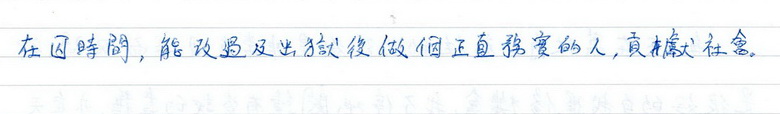 在囚時間,能改過及出獄後做個正直務實的人,貢獻社會。